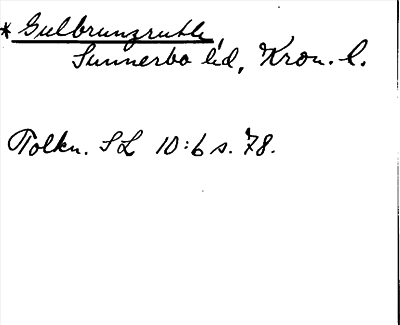 * Gulbrunzruthe,
Sunnerbo hd, Kron. l.
Tolkn. SL 10:6 s. 78.